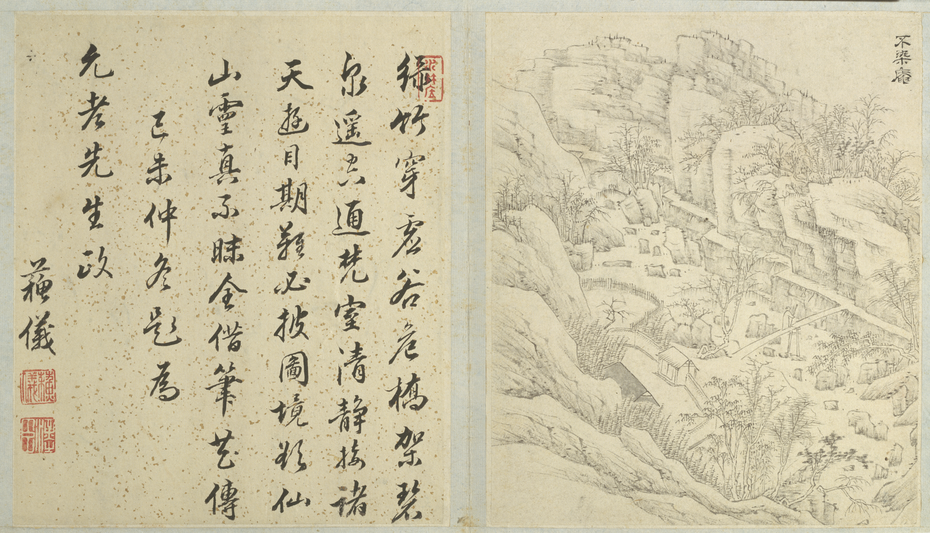 不染菴
綠竹穿虛谷危橋架碧
泉遙空通梵室清靜接諸
天遊目期難必披圖境欲仙
山靈真不昧全借筆花傳
己未仲冬題為
允老先生政
蘓儀